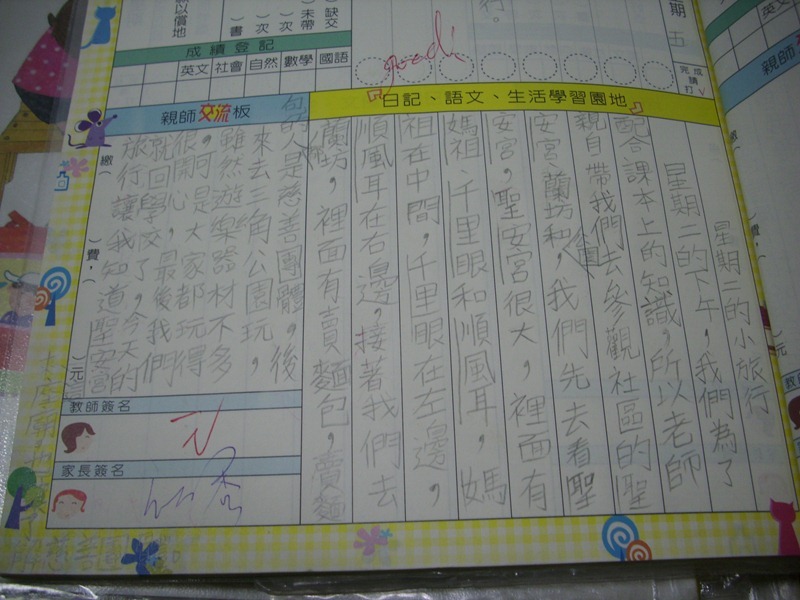 期五
英文
親師
缺交
未帶
次
次
書
以償地
行。
成績登記
國語
數學
自然
社會
英文
完成請打✓
Good!
日記、語文、生活學習園地
親師交流板
星期二的小旅行
星期二的下午,我們為了
配合課本上的知識,所以老師
親自帶我們去參觀社區的聖
安宮、蘭坊和公園,我們先去看聖
安宮,聖安宮很大,裡面有
媽祖、千里眼和順風耳,媽
祖在中間,千里眼在左邊,
順風耳在右邊,接著我們去
蘭坊,裡面有賣麵包,賣麵
包的人是慈善團體,後
來去三角公園玩,
雖然遊樂器材不多
,可是大家都玩得
很開心,最後我們
就回學校了,今天的
旅行讓我知道聖安宮
繳( )費,( )元
費,
教師簽名
家長簽名